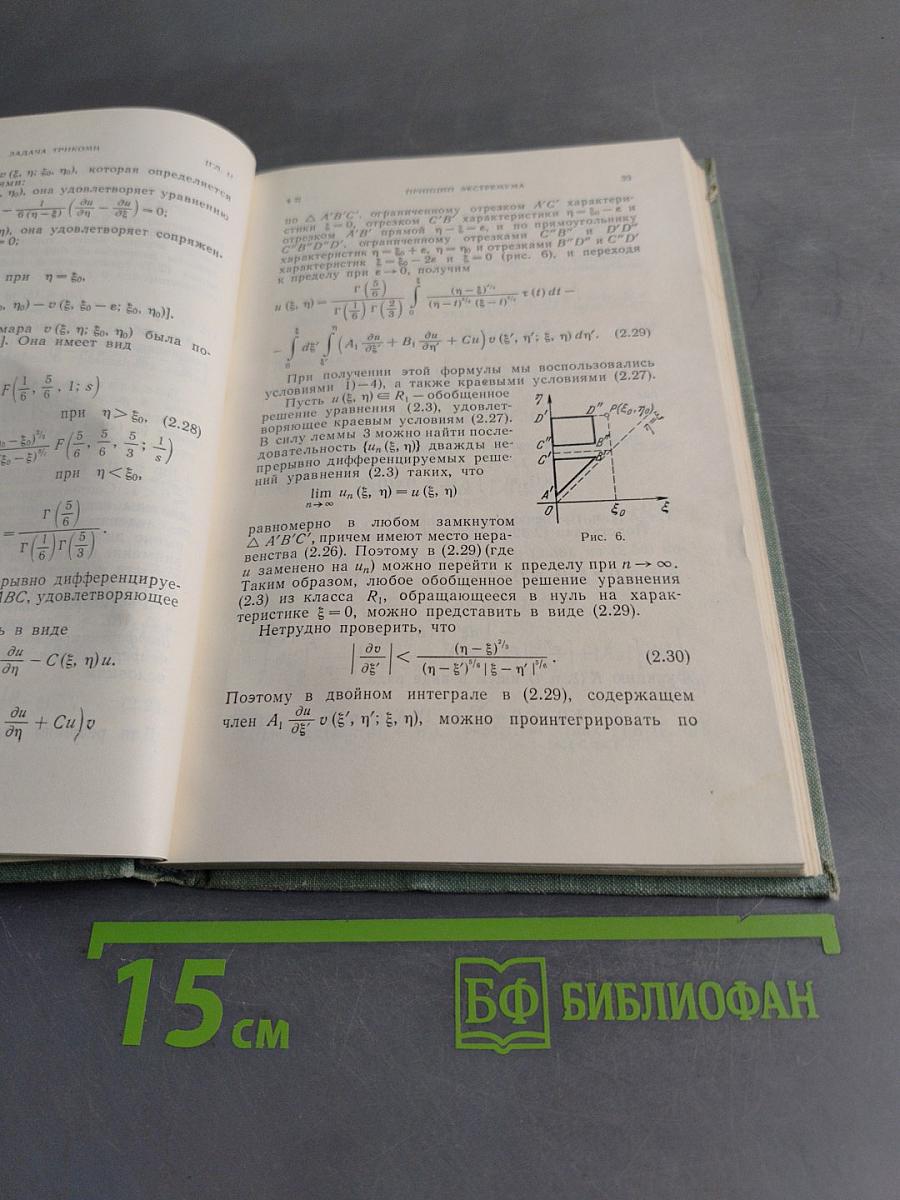 ЗАДАЧА ТРИКОМИ
v (ξ, η; ξ₀, η₀), которая определяется
ями:
, η₀), она удовлетворяет уравнению
− 1/(6 (η − ξ)) (∂u/∂η − ∂u/∂ξ) = 0;
η), она удовлетворяет сопряжен.
= 0;
при η = ξ₀,
, η₀) − v (ξ, ξ₀ − ε; ξ₀, η₀)].
мара v (ξ, η; ξ₀, η₀) была по-
]. Она имеет вид
F (1/6, 5/6, 1; s)
при η > ξ₀, (2.28)
F (5/6, 5/6, 5/3; 1/s)
при η < ξ₀,
= Γ (5/6) / (Γ (1/6) Γ (5/3)) .
рывно дифференцируе-
ABC, удовлетворяющее
ь в виде
∂u/∂η − C (ξ, η) u.
∂u/∂η + Cu) v
ПРИНЦИП ЭКСТРЕМУМА
по △ A′B′C′, ограниченному отрезком A′C′ характери-
стики ξ = 0, отрезком C′B′ характеристики η = ξ₀ − ε и
отрезком A′B′ прямой η − ξ = ε, и по прямоугольнику
C″B″D″D′, ограниченному отрезками C″B″ и D′D″
характеристик η = ξ₀ + ε, η = η₀ и отрезками B″D″ и C″D′
характеристик ξ = ξ₀ − 2ε и ξ = 0 (рис. 6), и переходя
к пределу при ε → 0, получим
u (ξ, η) = Γ (5/6) / (Γ (1/6) Γ (2/3)) ∫₀^ξ (η − ξ)^{2/3} / ((η − t)^{5/6} (ξ − t)^{5/6}) τ (t) dt −
− ∫₀^ξ dξ′ ∫_{ξ′}^η (A₁ ∂u/∂ξ′ + B₁ ∂u/∂η′ + Cu) v (ξ′, η′; ξ, η) dη′. (2.29)
При получении этой формулы мы воспользовались
условиями 1)—4), а также краевыми условиями (2.27).
Пусть u (ξ, η) ∈ R₁ — обобщенное
решение уравнения (2.3), удовлет-
воряющее краевым условиям (2.27).
В силу леммы 3 можно найти после-
довательность {uₙ (ξ, η)} дважды не-
прерывно дифференцируемых реше-
ний уравнения (2.3) таких, что
lim uₙ (ξ, η) = u (ξ, η)
n→∞
равномерно в любом замкнутом
△ A′B′C′, причем имеют место нера-
венства (2.26). Поэтому в (2.29) (где
η
D′ D″ P(ξ₀,η₀)
η=ξ
C″ B″
C′ B′
A′
O ξ₀ ξ
Рис. 6.
u заменено на uₙ) можно перейти к пределу при n → ∞.
Таким образом, любое обобщенное решение уравнения
(2.3) из класса R₁, обращающееся в нуль на харак-
теристике ξ = 0, можно представить в виде (2.29).
Нетрудно проверить, что
|∂v/∂ξ′| < (η − ξ)^{2/3} / ((η − ξ′)^{5/6} | ξ − η′ |^{5/6}) . (2.30)
Поэтому в двойном интеграле в (2.29), содержащем
член A₁ ∂u/∂ξ′ v (ξ′, η′; ξ, η), можно проинтегрировать по
15 см
БФ БИБЛИОФАН